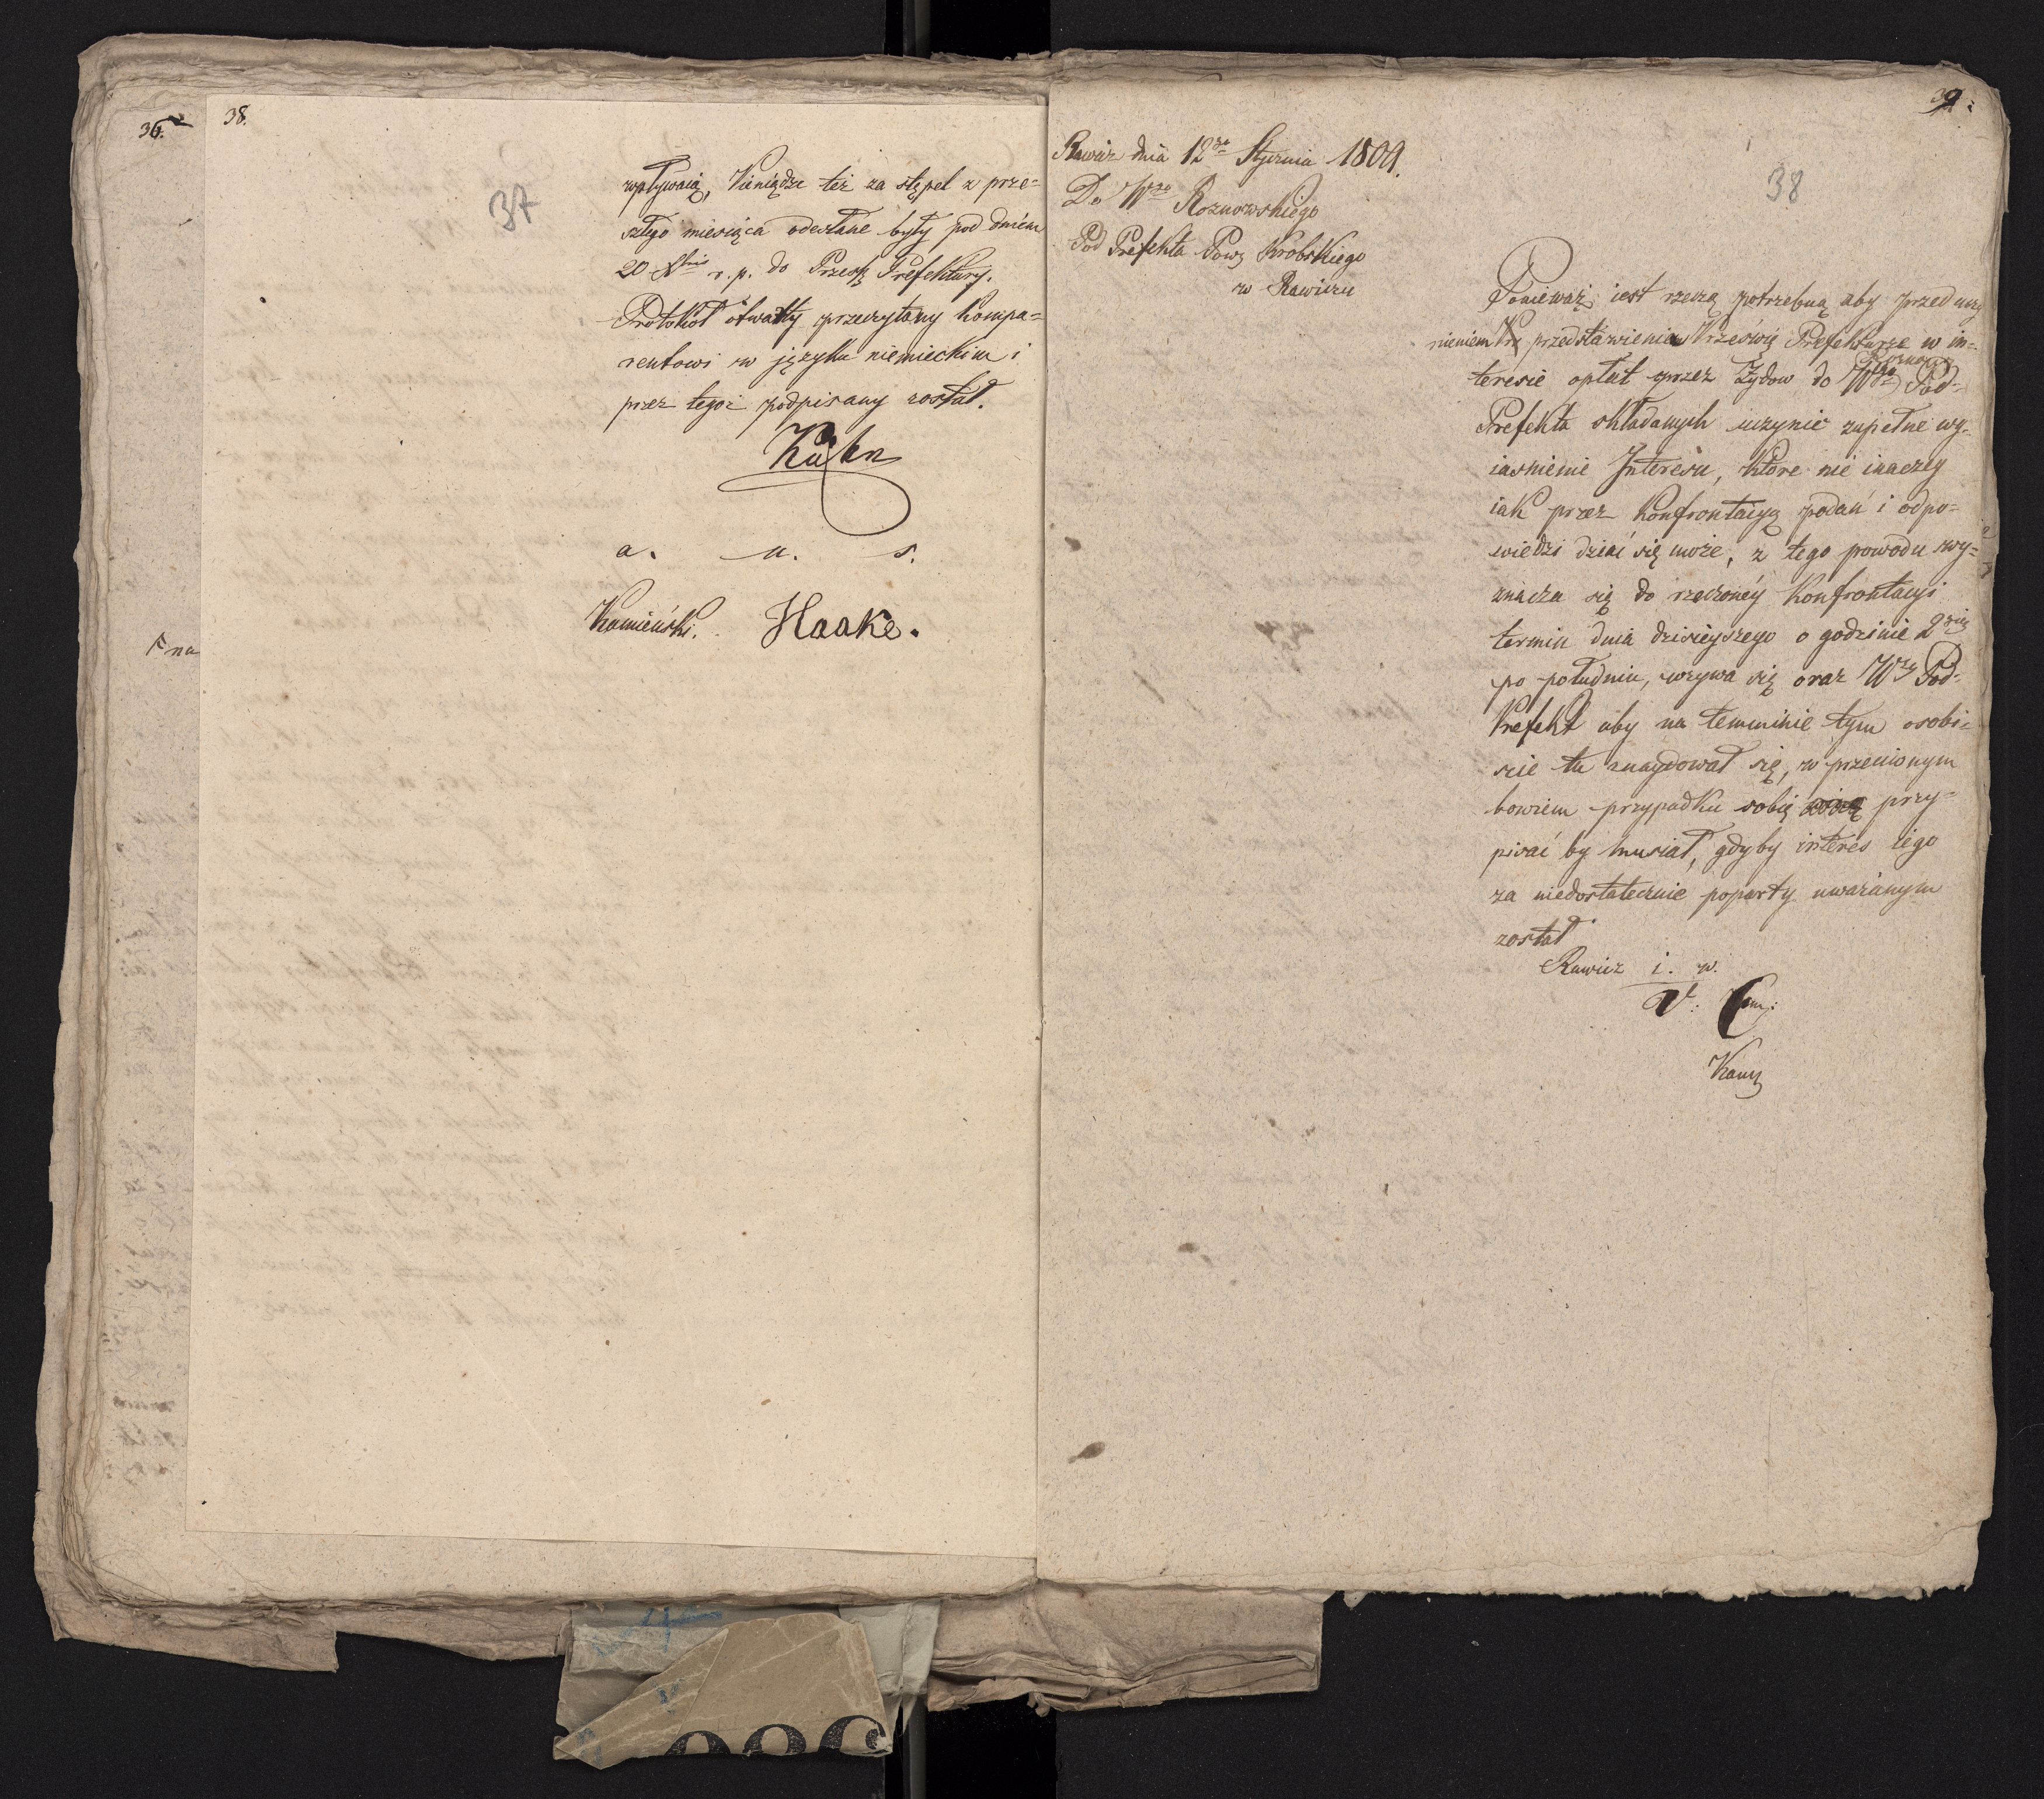 36.
38.
37
wpływaią, Pieniądze też za stępel z prze=
szłego miesiąca odesłane były pod dniem
20 Xbris r. p. do Prześ Prefektury.
Protokół otwarty przeczytany Kompa=
rentowi w języku niemieckim i
przez tegoż podpisany został.
Kuhn
a. u. s.
Kamieński. Haake.
na
39.
38
Rawicz dnia 12go Stycznia 1809.
Do Wgo Roznowskiego
Pod Prefekta Pow Krobskiego
w Rawiczu
Ponieważ iest rzeczą potrzebną aby przed uczy
nieniem przedstawienia Prześwię Prefekturze w in=
teresie opłat przez Zydow do Wgo Pod=
Prefekta składanych uczynić zupełne wy=
iasnienie Interesu, które nie inaczey
iak przez Konfrontacyą podań i odpo=
wiedzi dziać się może, z tego powodu wy=
znacza się do rzeczonéy Konfrontacyi
termin dnia dzisieyszego o godzinie 2giey
po południu, wzywa się oraz Wny Pod=
Prefekt aby na terminie tym osobi=
scie tu znaydował się, w przeciwnym
bowiem przypadku sobię przy=
pisać by musiał, gdyby interes iego
za niedostatecznie poparty uważanym
został
Rawicz i. w.
V. Cam:
Kam